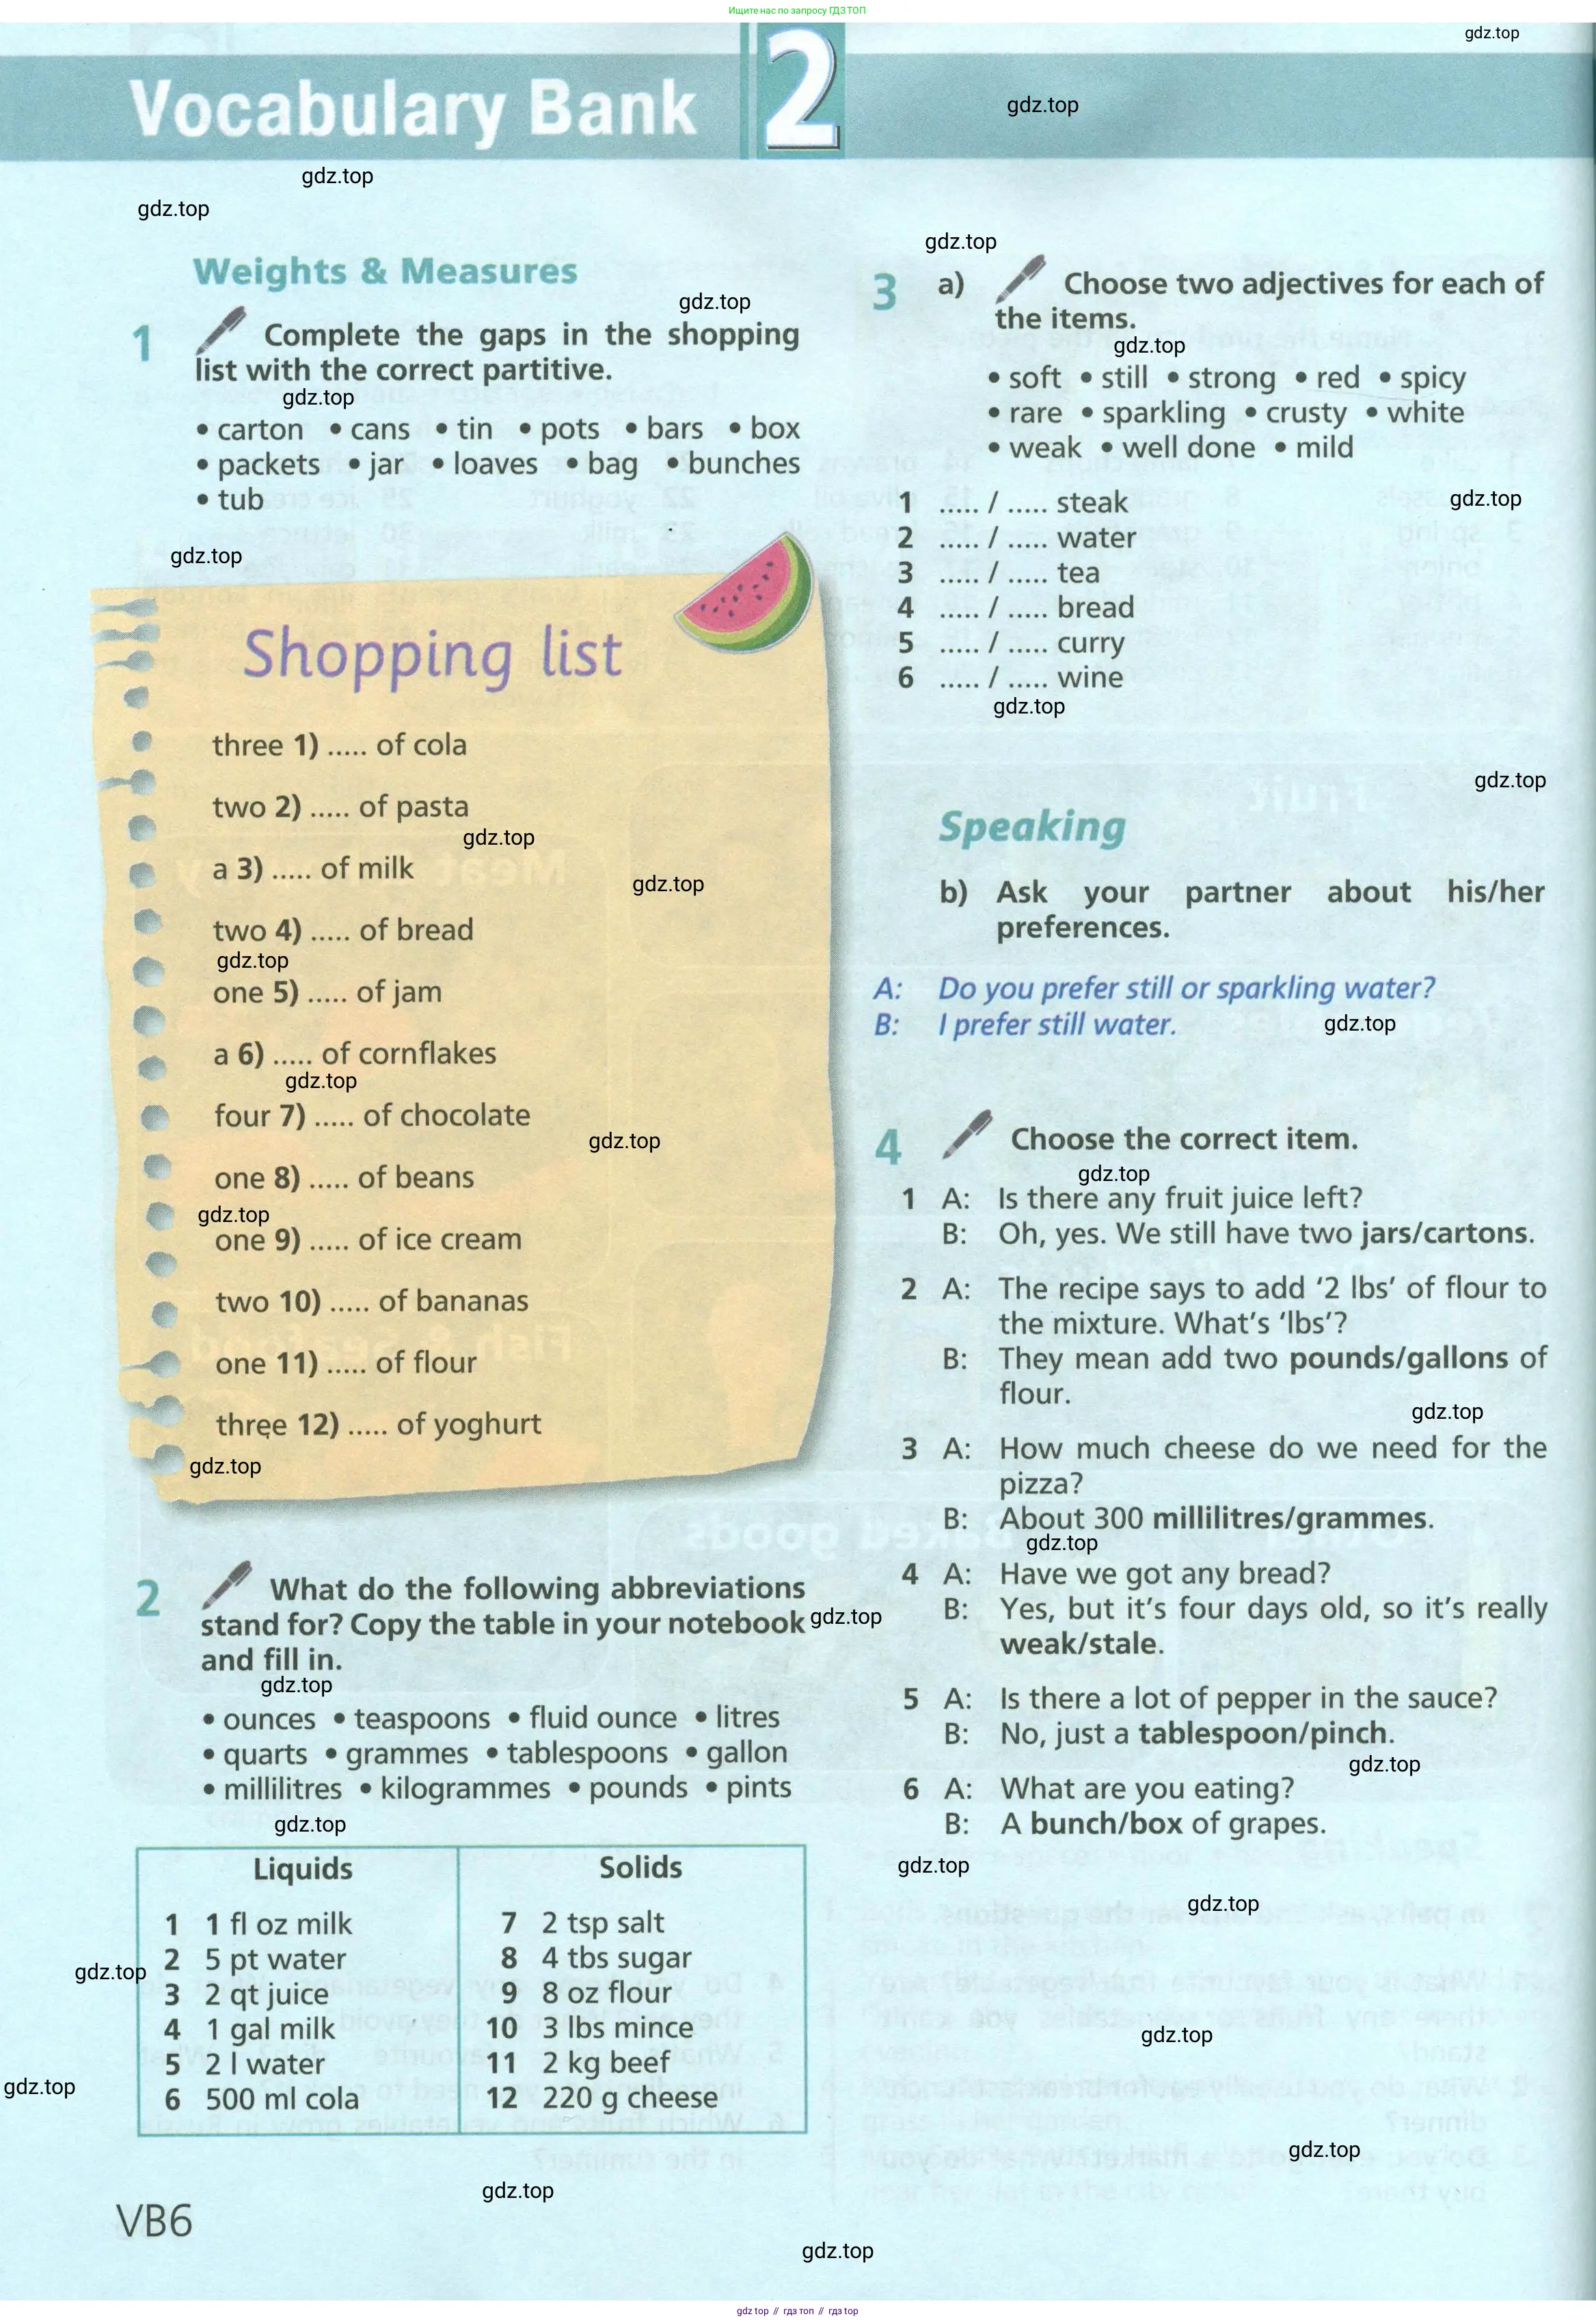 Ищите нас по запросу ГДЗ ТОП
gdz.top
Vocabulary Bank 2
gdz.top
gdz.top
gdz.top
Weights & Measures
gdz.top
1 Complete the gaps in the shopping
list with the correct partitive.
gdz.top
• carton • cans • tin • pots • bars • box
• packets • jar • loaves • bag • bunches
• tub
gdz.top
Shopping list
three 1) ..... of cola
two 2) ..... of pasta
gdz.top
a 3) ..... of milk
gdz.top
two 4) ..... of bread
gdz.top
one 5) ..... of jam
a 6) ..... of cornflakes
gdz.top
four 7) ..... of chocolate
gdz.top
one 8) ..... of beans
gdz.top
one 9) ..... of ice cream
two 10) ..... of bananas
one 11) ..... of flour
three 12) ..... of yoghurt
gdz.top
2 What do the following abbreviations
stand for? Copy the table in your notebook
and fill in.
gdz.top
gdz.top
• ounces • teaspoons • fluid ounce • litres
• quarts • grammes • tablespoons • gallon
• millilitres • kilogrammes • pounds • pints
gdz.top
Liquids
1 1 fl oz milk
2 5 pt water
gdz.top
3 2 qt juice
4 1 gal milk
5 2 l water
gdz.top
6 500 ml cola
Solids
7 2 tsp salt
8 4 tbs sugar
9 8 oz flour
10 3 lbs mince
11 2 kg beef
12 220 g cheese
gdz.top
VB6
gdz.top
3 a) Choose two adjectives for each of
the items.
gdz.top
• soft • still • strong • red • spicy
• rare • sparkling • crusty • white
• weak • well done • mild
1 ..... / ..... steak
gdz.top
2 ..... / ..... water
3 ..... / ..... tea
4 ..... / ..... bread
5 ..... / ..... curry
6 ..... / ..... wine
gdz.top
gdz.top
Speaking
b) Ask your partner about his/her
preferences.
A: Do you prefer still or sparkling water?
B: I prefer still water.
gdz.top
4 Choose the correct item.
gdz.top
1 A: Is there any fruit juice left?
B: Oh, yes. We still have two jars/cartons.
2 A: The recipe says to add ‘2 lbs’ of flour to
the mixture. What’s ‘lbs’?
B: They mean add two pounds/gallons of
flour.
gdz.top
3 A: How much cheese do we need for the
pizza?
B: About 300 millilitres/grammes.
gdz.top
4 A: Have we got any bread?
B: Yes, but it’s four days old, so it’s really
weak/stale.
5 A: Is there a lot of pepper in the sauce?
B: No, just a tablespoon/pinch.
gdz.top
6 A: What are you eating?
B: A bunch/box of grapes.
gdz.top
gdz.top
gdz.top
gdz.top
gdz.top
gdz top // гдз топ // гдз top